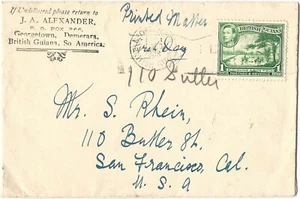 If Undelivered please return to
J. A. ALEXANDER,
P. O. BOX 266,
Georgetown, Demerara,
British Guiana, So. America.
Printed Matter
First Day
BRITISH GUIANA
1
110 Sutter
Mr. S. Rhein,
110 Butler St.
San Francisco, Cal.
U. S. A